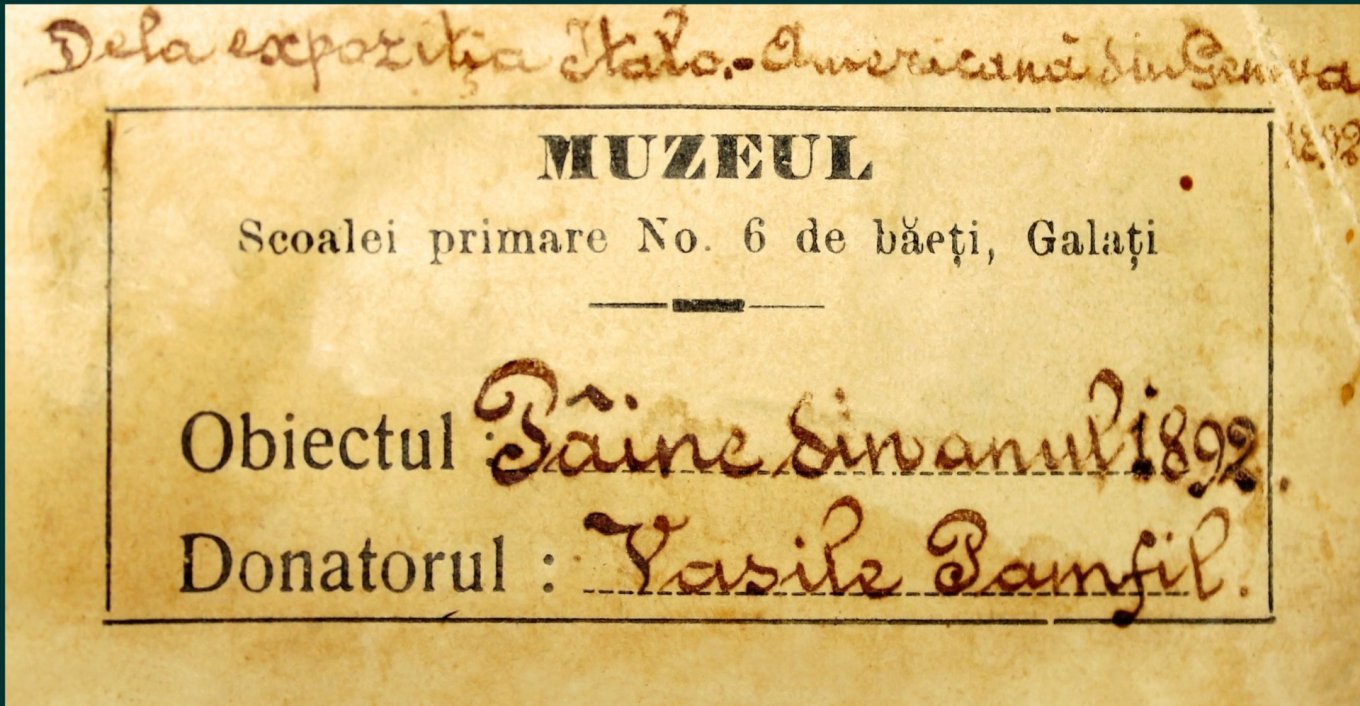 Dela expoziția Italo.-Americană din Geneva
1892
MUZEUL
Scoalei primare No. 6 de băeți, Galați
Obiectul : Pâine din anul 1892.
Donatorul : Vasile Pamfil.